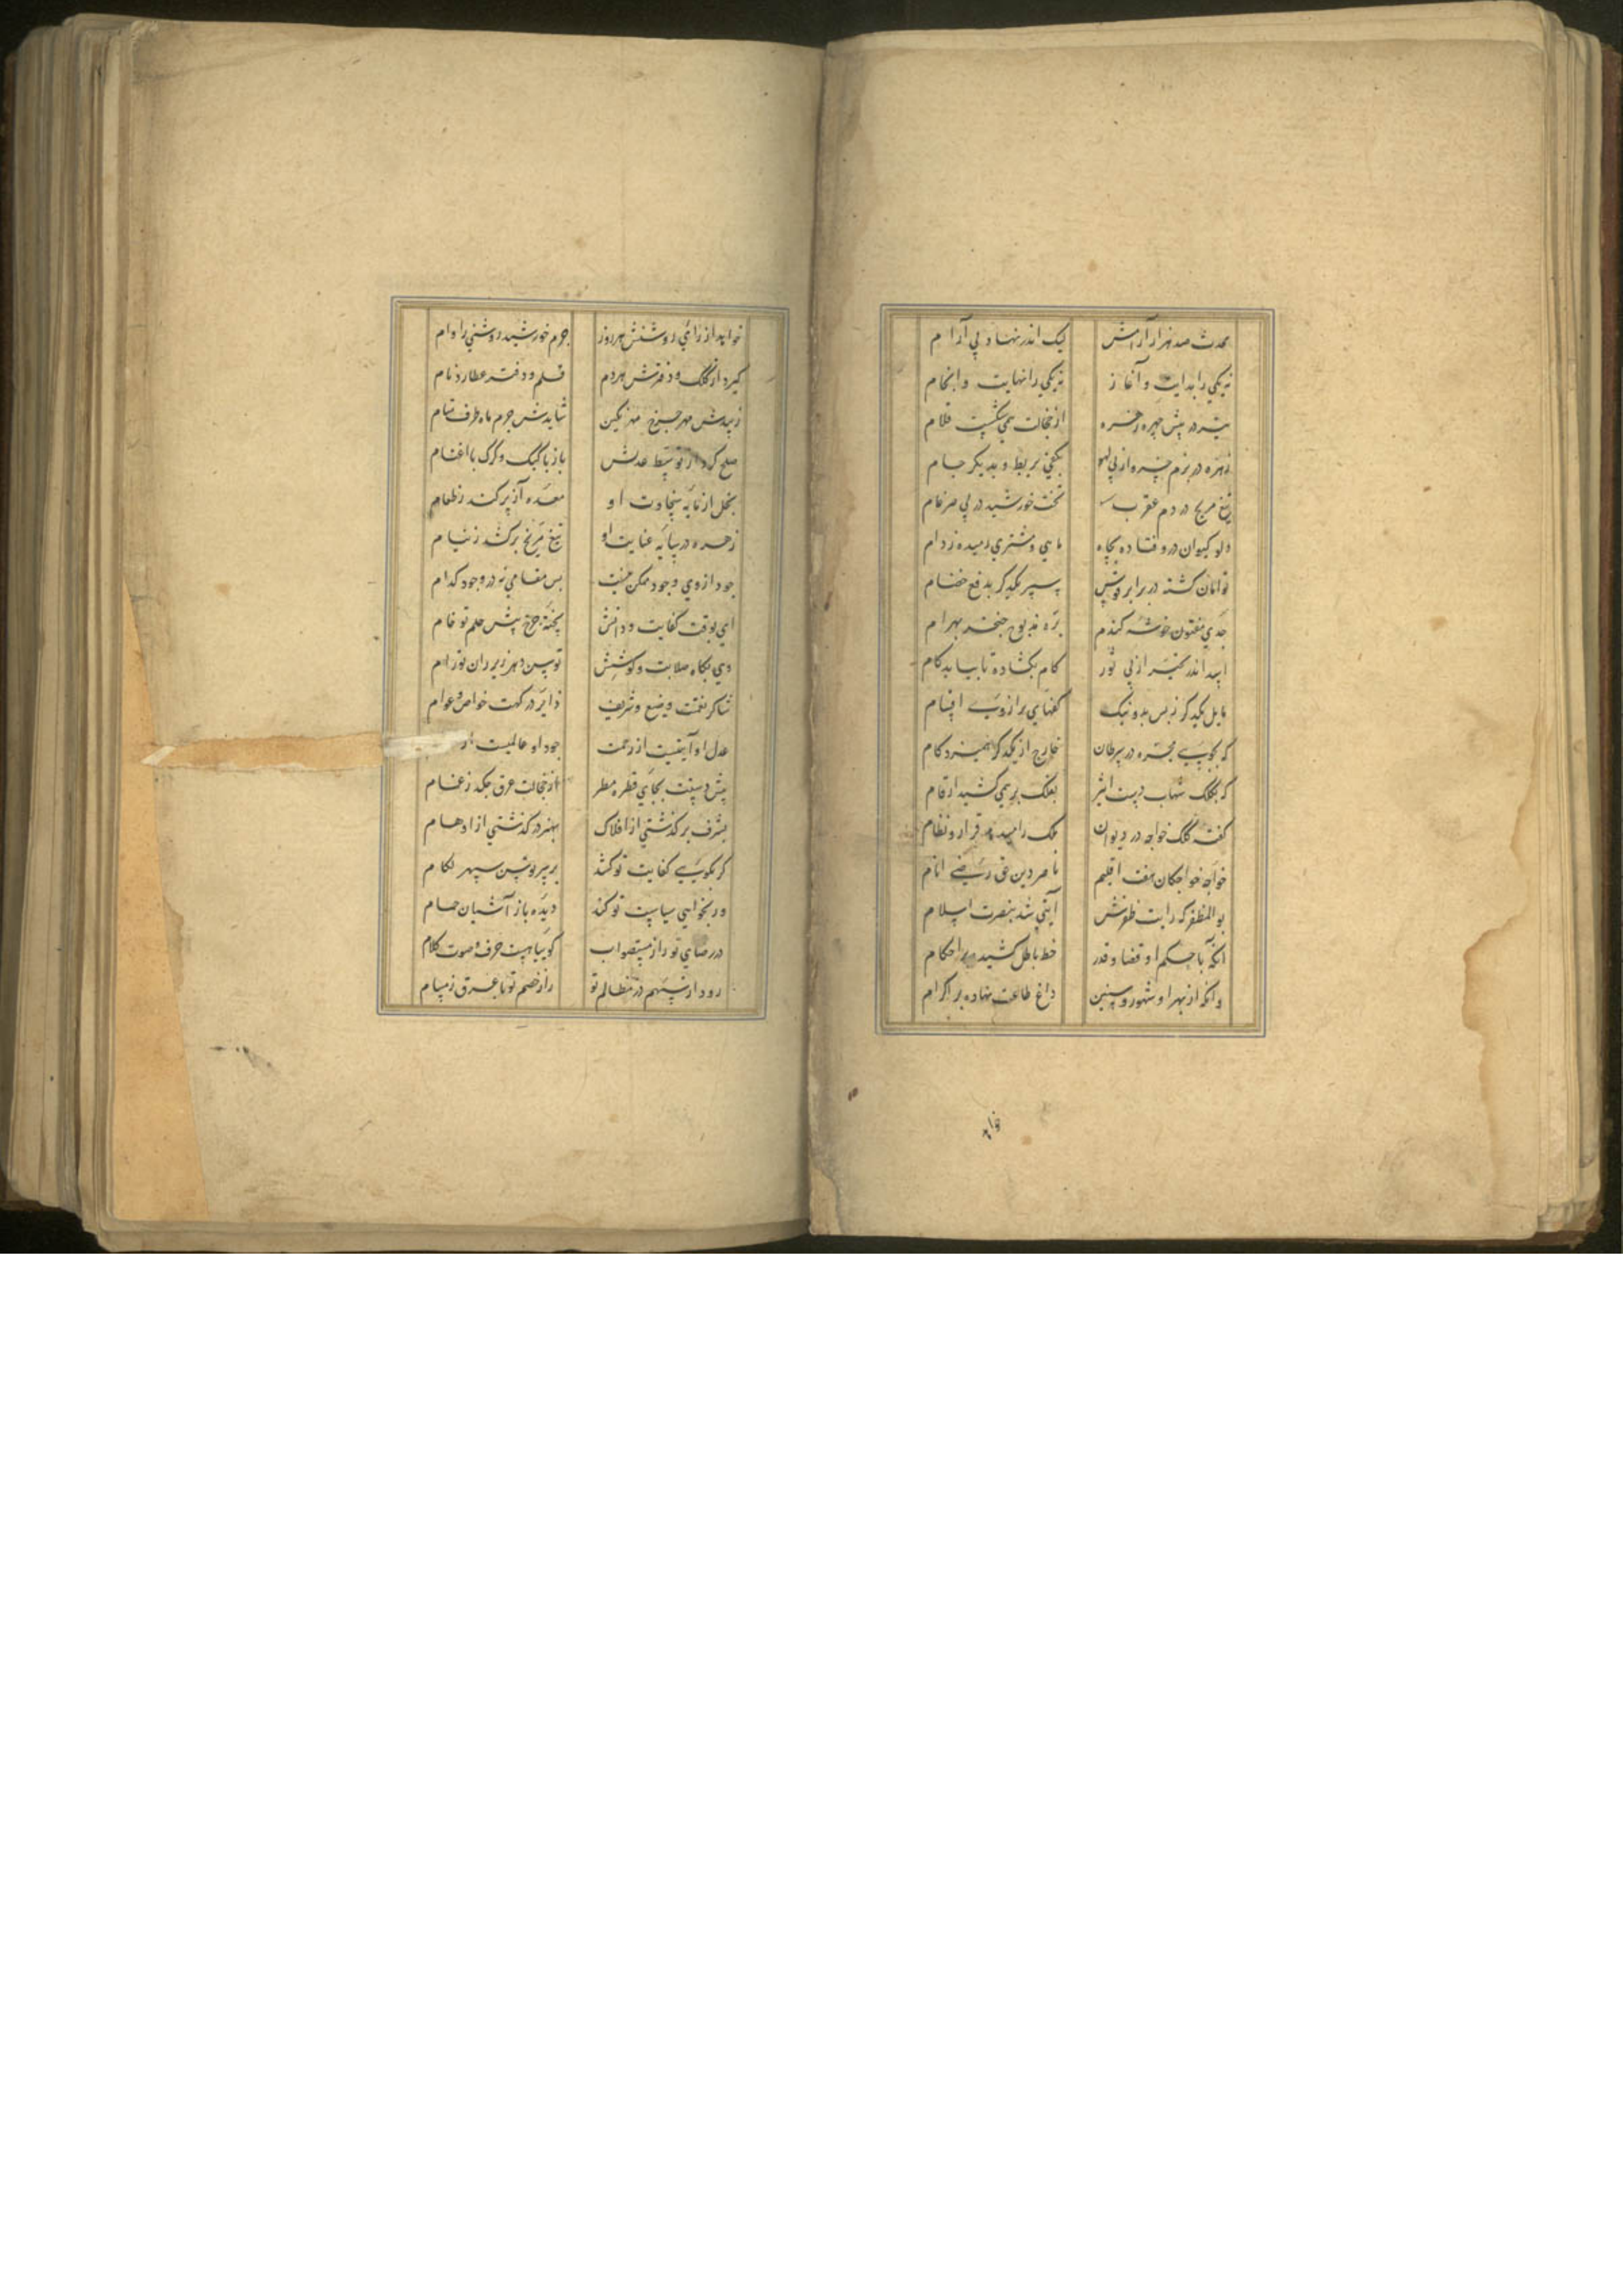 محدث صد هزار آرامش لیک اندر نهاد بی آرام
نه یکی را بدایت و آغاز نه یکی را نهایت و انجام
تیر در پیش چهره زهره از خجالت همی شکست قلام
زهره در بزم خسرو از پی لهو بکفی بربط و بدیگر جام
تیغ مریخ در دم عقرب تخت خورشید در پی ضرغام
دلو کیوان درو فتاده بچاه ماهی و مشتری رمیده ز دام
توامان گشته در برابر قوس سپر یکدیگر بدفع خصام
جدی مفتون خوشه گندم بره مذبوح خنجر بهرام
اسد اندر کمین از پی ثور کام بگشاده تا بیابد کام
مایل یکدیگر ز بس بد و نیک کفهای ترازوی اقسام
که بجوی مجره در سرطان خارج از یکدگر همیزد کام
که بکلک شهاب دست اثیر بفلک بر همی کشید ارقام
گفته کلک خواجه در دیوان ملک را میدهد قرار و نظام
خواجه خواجگان هفت اقلیم ناصر دین حق رضی انام
بوالمظفر که رایت ظفرش آیتی شد بنصرت اسلام
آنکه با حکم او قضا و قدر خط باطل کشیده بر احکام
وانکه از بهر او شهور و سنین داغ طاعت نهاده بر اکرام
خواهد از رای روشنش هر روز جرم خورشید روشنی را وام
گیرد از کلک و دفترش هر دم قلم و دفتر عطارد نام
زیبدش مهر چرخ مهر نگین شایدش جرم ماه طرف ستام
صلح کرد از توسط عدلش باز با کبک و گرگ با اغنام
بخل از مایه سخاوت او معده آز پر کند ز طعام
زهره در سایه عنایت او تیغ مریخ برکشد ز نیام
جود از وی وجود ممکن نیست بس مقامی نه در وجود کدام
ای بوقت کفایت و دانش پخته چرخ پیش حلم تو خام
دی بگاه صلابت و کوشش توسن دهر زیر ران تو رام
شاکر نعمتت وضیع و شریف زایر درگهت خواص و عوام
عدل او آیتیست از رحمت جود او عالمیست از
پیش دستت بجای قطره مطر از خجالت عرق چکد ز غمام
بشرف برگذشتی از افلاک بهنر درگذشتی از اوهام
گر بکوبی کفایت تو کشد بر سر توسن سپهر لگام
ور بخواهی سیاست تو کند دیده باز آشیان حمام
در رضای تو راز مستصواب گوییا هست حرف و صوت کلام
رود ار سهم در مظالم تو راز خصم تو با عرق ز مسام